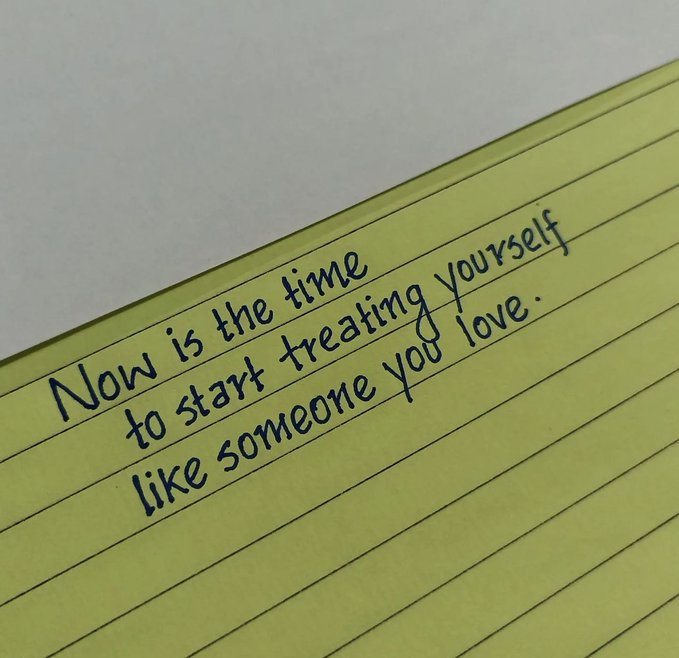 Now is the time
to start treating yourself
like someone you love.